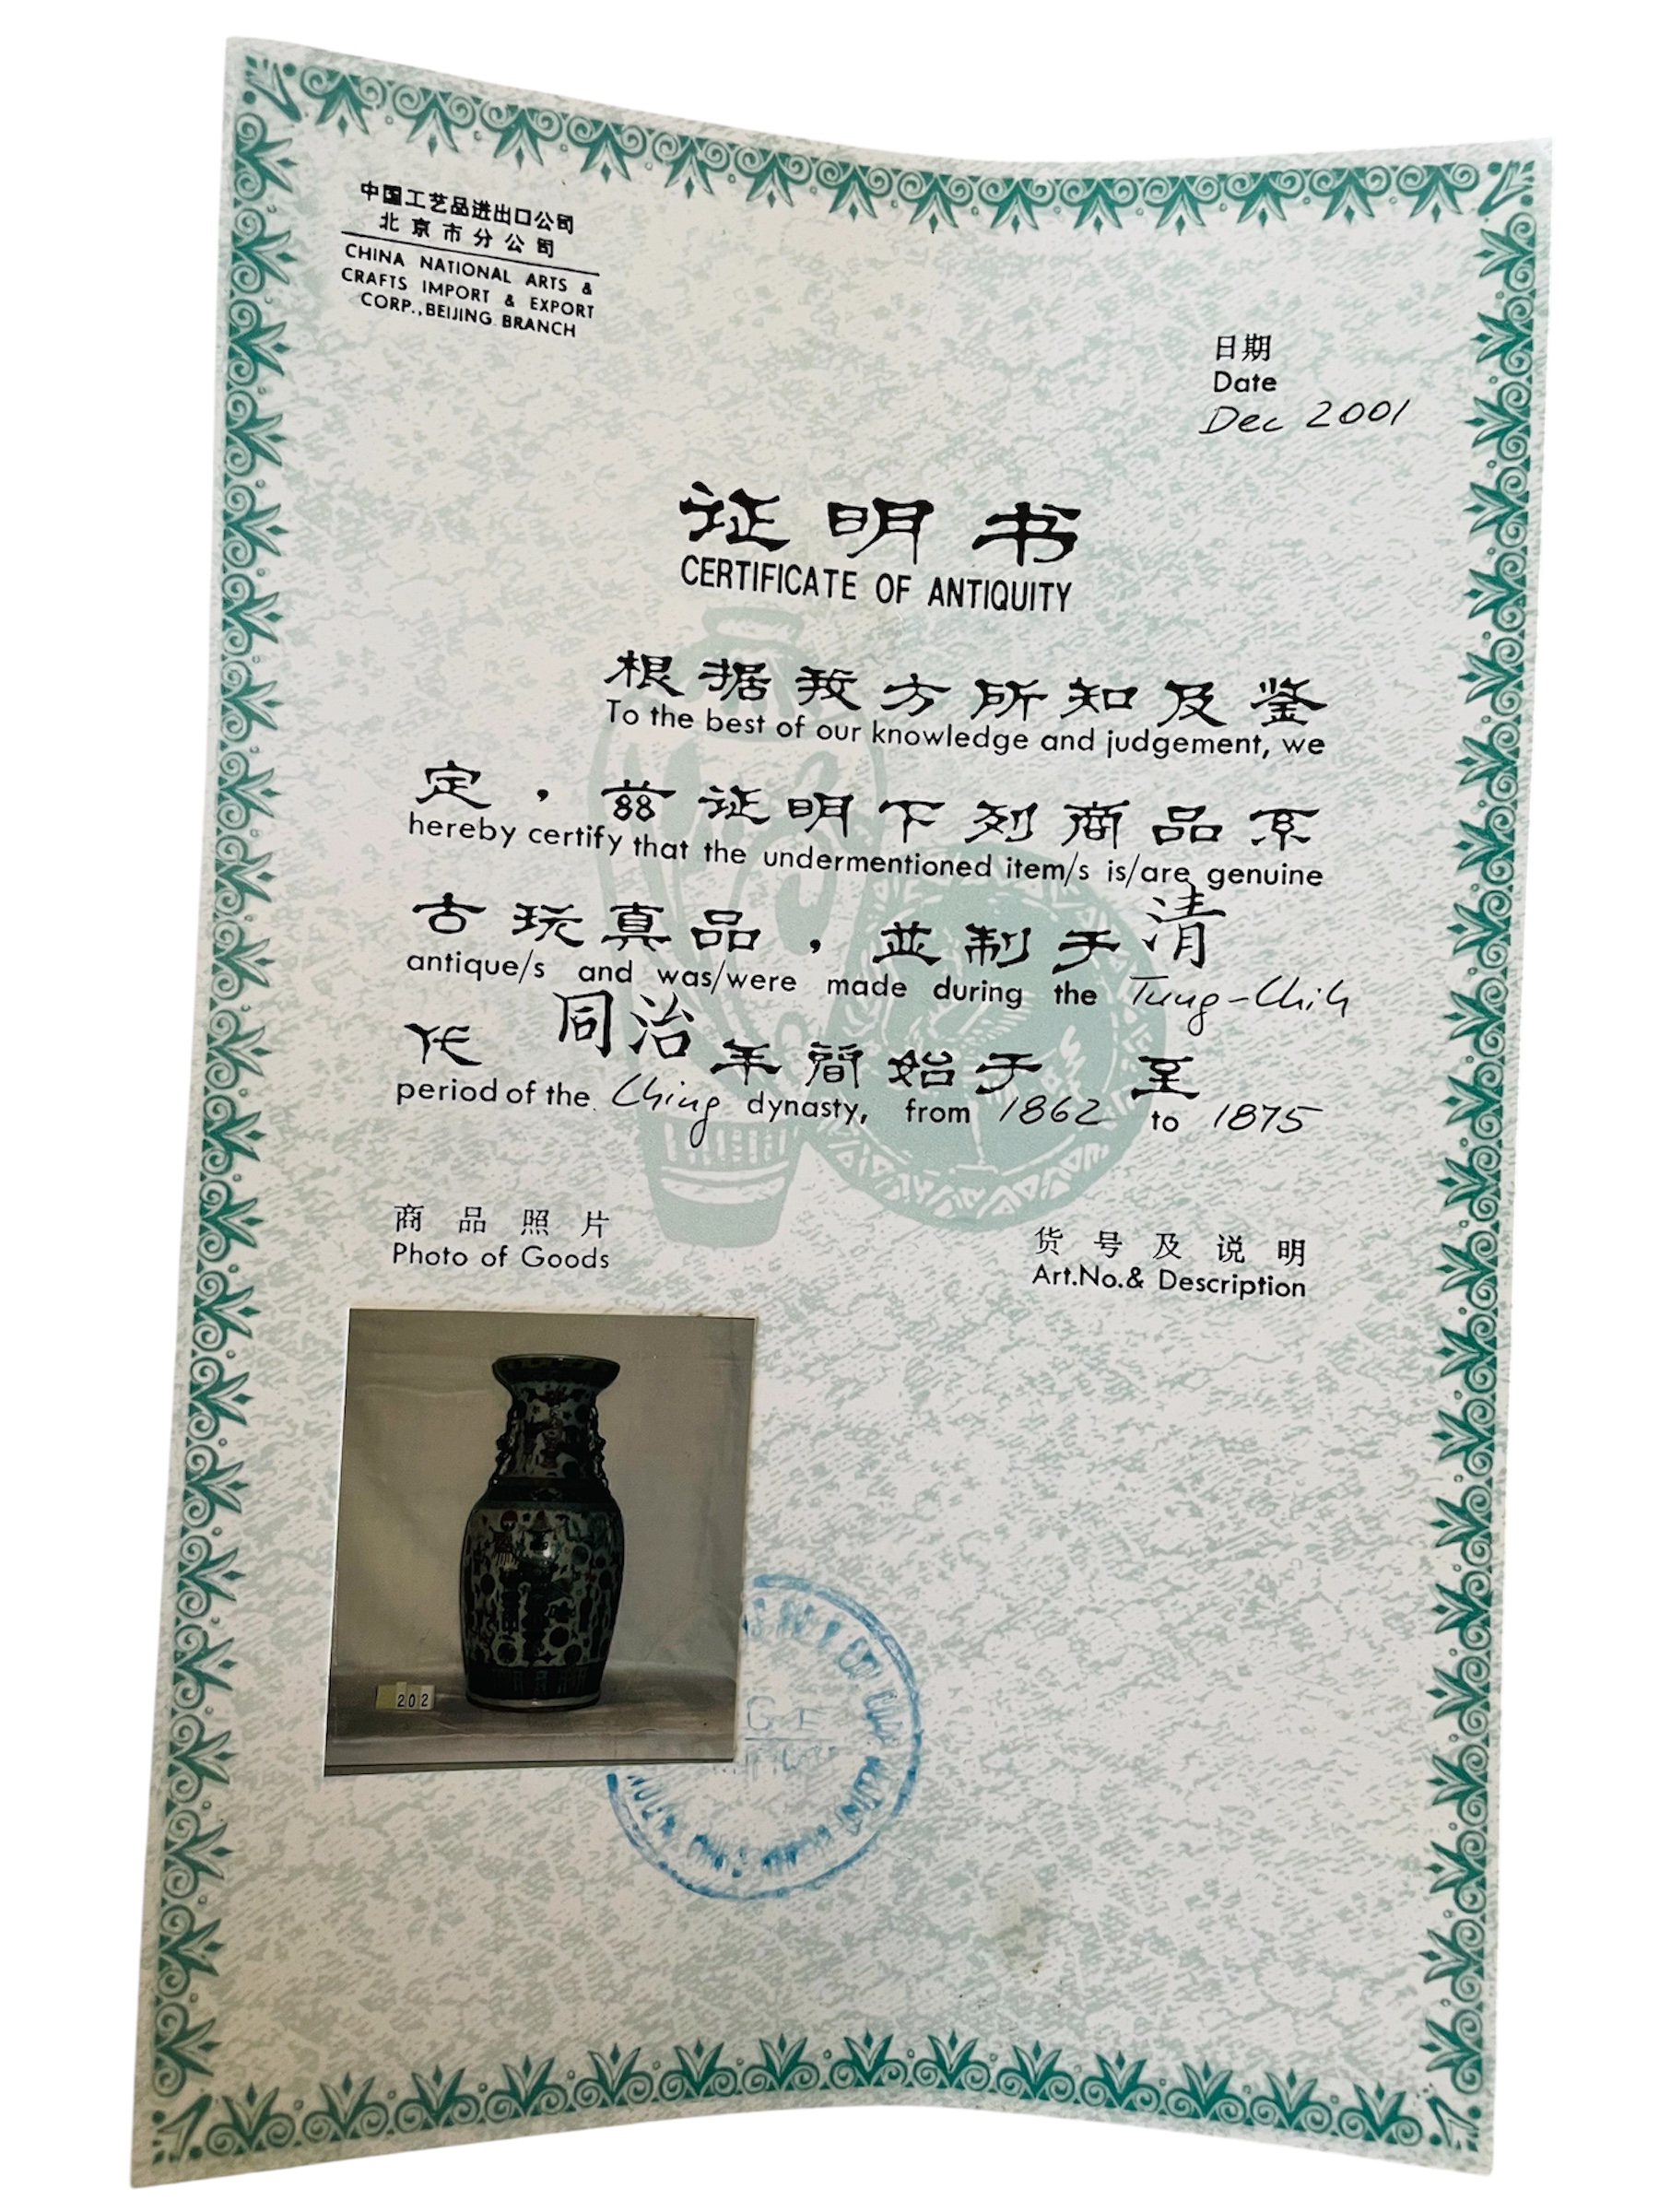 中国工艺品进出口公司
北京市分公司
CHINA NATIONAL ARTS &
CRAFTS IMPORT & EXPORT
CORP., BEIJING BRANCH
日期
Date
Dec 2001
证明书
CERTIFICATE OF ANTIQUITY
根据我方所知及鉴
To the best of our knowledge and judgement, we
定，兹证明下列商品系
hereby certify that the undermentioned item/s is/are genuine
古玩真品，並制于清
antique/s and was/were made during the Tung-Chih
代 同治年簡始于 至
period of the Ching dynasty, from 1862 to 1875
商品照片
Photo of Goods
货号及说明
Art.No.& Description
202